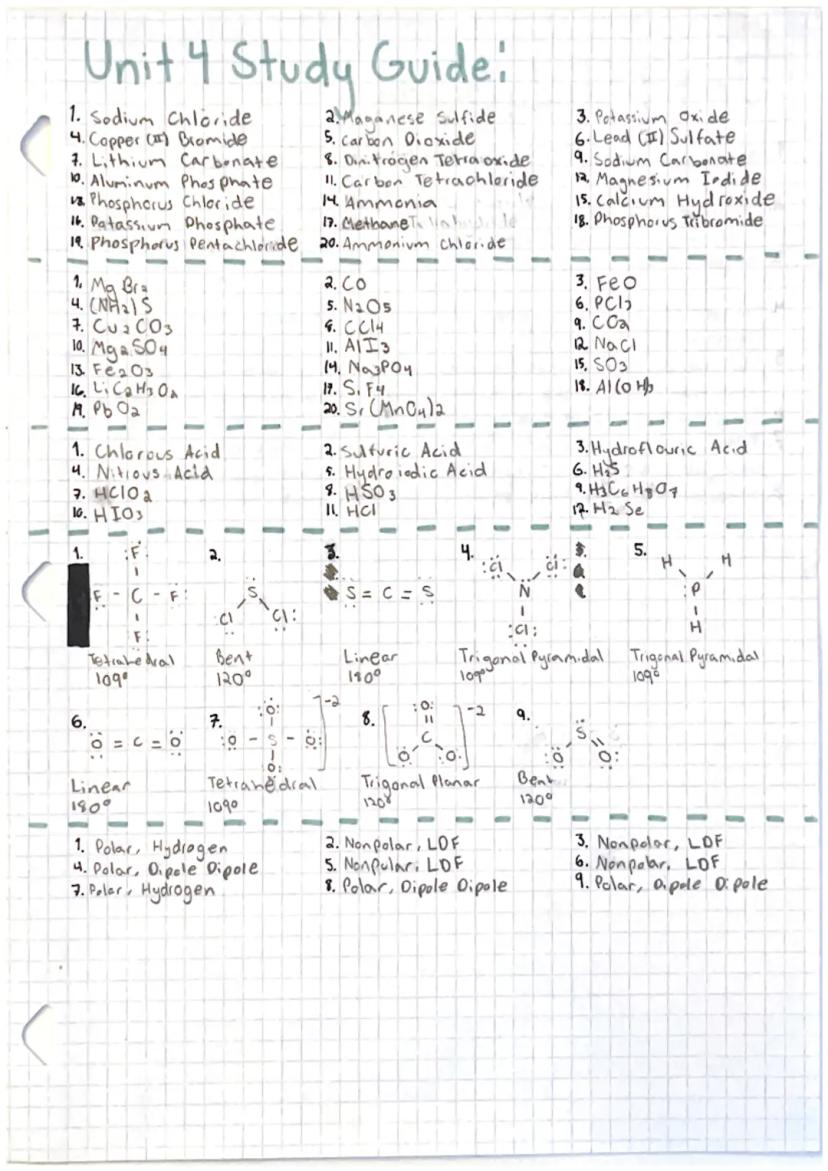 Unit 4 Study Guide:
1. Sodium Chloride 2. Maganese Sulfide 3. Potassium Oxide
4. Copper (II) Bromide 5. Carbon Dioxide 6. Lead (II) Sulfate
7. Lithium Carbonate 8. Dinitrogen Tetraoxide 9. Sodium Carbonate
10. Aluminum Phosphate 11. Carbon Tetrachloride 12. Magnesium Iodide
13. Phosphorus Chloride 14. Ammonia 15. Calcium Hydroxide
16. Potassium Phosphate 17. Methane 18. Phosphorus Tribromide
19. Phosphorus Pentachloride 20. Ammonium Chloride
1. MgBr2 2. CO 3. FeO
4. (NH2)S 5. N2O5 6. PCl3
7. Cu2CO3 8. CCl4 9. CO2
10. Mg2SO4 11. AlI3 12. NaCl
13. Fe2O3 14. Na3PO4 15. SO3
16. LiC2H3O2 17. SiF4 18. Al(OH)3
19. PbO2 20. Sr(MnO4)2
1. Chlorous Acid 2. Sulfuric Acid 3. Hydroflouric Acid
4. Nitrous Acid 5. Hydroiodic Acid 6. H2S
7. HClO2 8. HSO3 9. H3C6H8O7
10. HIO3 11. HCl 12. H2Se
1. 2. 3. 4. 5.
F Cl Cl H H
F - C - F S S = C = S N P
F Cl Cl Cl H
Tetrahedral Bent Linear Trigonal Pyramidal Trigonal Pyramidal
109° 120° 180° 109° 109°
6. 7. 8. 9.
O O -2 O -2 S
O = C = O O - S - O C O O
O O O
Linear Tetrahedral Trigonal Planar Bent
180° 109° 120° 120°
1. Polar, Hydrogen 2. Nonpolar, LDF 3. Nonpolar, LDF
4. Polar, Dipole Dipole 5. Nonpolar, LDF 6. Nonpolar, LDF
7. Polar, Hydrogen 8. Polar, Dipole Dipole 9. Polar, Dipole Dipole